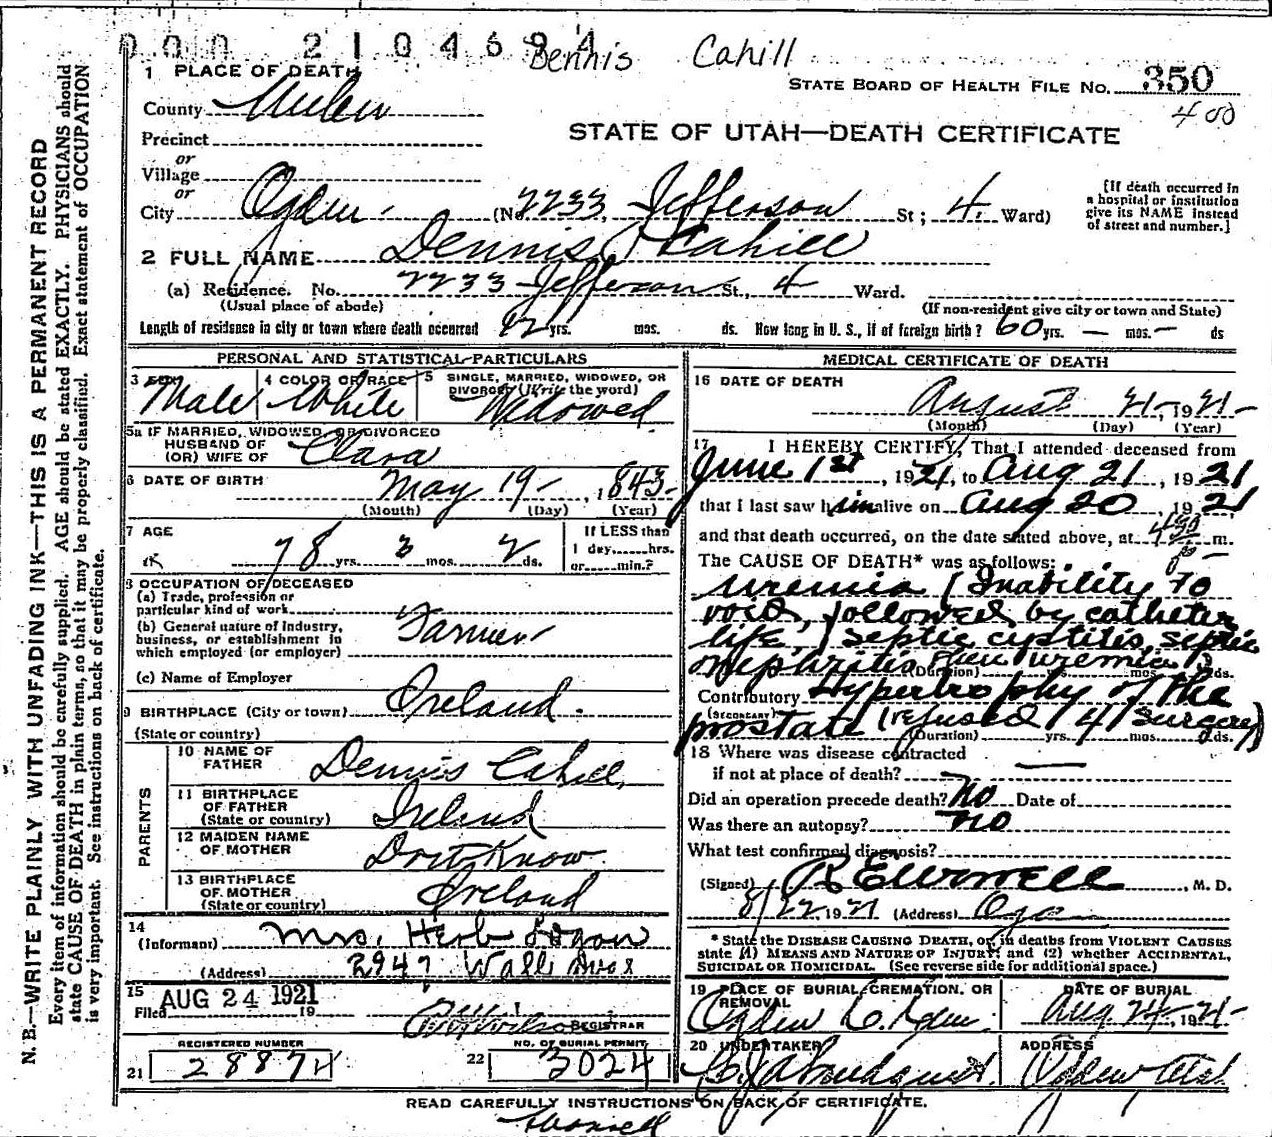 000 2104694
Dennis Cahill
1 PLACE OF DEATH
STATE BOARD OF HEALTH FILE NO. 350
400
County
STATE OF UTAH—DEATH CERTIFICATE
Precinct
or
Village
or
City Ogden (No 2233 Jefferson St; 4. Ward)
[If death occurred in
a hospital or institution
give its NAME instead
of street and number.]
2 FULL NAME Dennis Cahill
(a) Residence. No. 2233 Jefferson St., 4 Ward.
(Usual place of abode)
(If non-resident give city or town and State)
Length of residence in city or town where death occurred yrs. mos. ds. How long in U. S., if of foreign birth? 60 yrs. — mos. — ds
PERSONAL AND STATISTICAL PARTICULARS
3 SEX Male
4 COLOR OR RACE White
5 SINGLE, MARRIED, WIDOWED, OR
DIVORCED (Write the word)
Widowed
5a IF MARRIED, WIDOWED, OR DIVORCED
HUSBAND OF
(OR) WIFE OF Clara
6 DATE OF BIRTH May 19-, 1843-
(Month) (Day) (Year)
7 AGE 78 yrs. 3 mos. 2 ds.
If LESS than
1 day......hrs.
or......min.?
8 OCCUPATION OF DECEASED
(a) Trade, profession or
particular kind of work
(b) General nature of industry,
business, or establishment in
which employed (or employer)
Farmer
(c) Name of Employer
9 BIRTHPLACE (City or town) Ireland.
(State or country)
PARENTS
10 NAME OF
FATHER Dennis Cahill,
11 BIRTHPLACE
OF FATHER
(State or country) Ireland
12 MAIDEN NAME
OF MOTHER Dont Know.
13 BIRTHPLACE
OF MOTHER
(State or country) Ireland
14
(Informant) Mrs. Herb Logan
(Address) 2947 Wall Ave
15
Filed AUG 24 1921 19
REGISTRAR
REGISTERED NUMBER
21 28874
NO. OF BURIAL PERMIT
22 3024
MEDICAL CERTIFICATE OF DEATH
16 DATE OF DEATH
August 21-1921-
(Month) (Day) (Year)
17 I HEREBY CERTIFY, That I attended deceased from
June 1st, 1921, to Aug 21, 1921
that I last saw him alive on Aug 20, 1921
and that death occurred, on the date stated above, at 4 30 m.
p
The CAUSE OF DEATH* was as follows:
uremia (Inability to
void, followed by catheter
life, septic cystitis, septic
nephritis then uremia)
(Duration) mos. ds.
Contributory Hypertrophy of the
(SECONDARY)
prostate (refused surgery)
(Duration) yrs. mos. ds.
18 Where was disease contracted
if not at place of death?
Did an operation precede death? No Date of
Was there an autopsy? no
What test confirmed diagnosis?
(Signed) , M. D.
8/22, 1921 (Address)
* State the DISEASE CAUSING DEATH, or, in deaths from VIOLENT CAUSES
state (1) MEANS AND NATURE OF INJURY; and (2) whether ACCIDENTAL,
SUICIDAL OR HOMICIDAL. (See reverse side for additional space.)
19 PLACE OF BURIAL, CREMATION. OR
REMOVAL
Ogden
DATE OF BURIAL
Aug 24-1921-
20 UNDERTAKER
ADDRESS
Ogden Utah.
READ CAREFULLY INSTRUCTIONS ON BACK OF CERTIFICATE.
N. B.—WRITE PLAINLY WITH UNFADING INK—THIS IS A PERMANENT RECORD
Every item of information should be carefully supplied. AGE should be stated EXACTLY. PHYSICIANS should
state CAUSE OF DEATH in plain terms, so that it may be properly classified. Exact statement of OCCUPATION
is very important. See instructions on back of certificate.